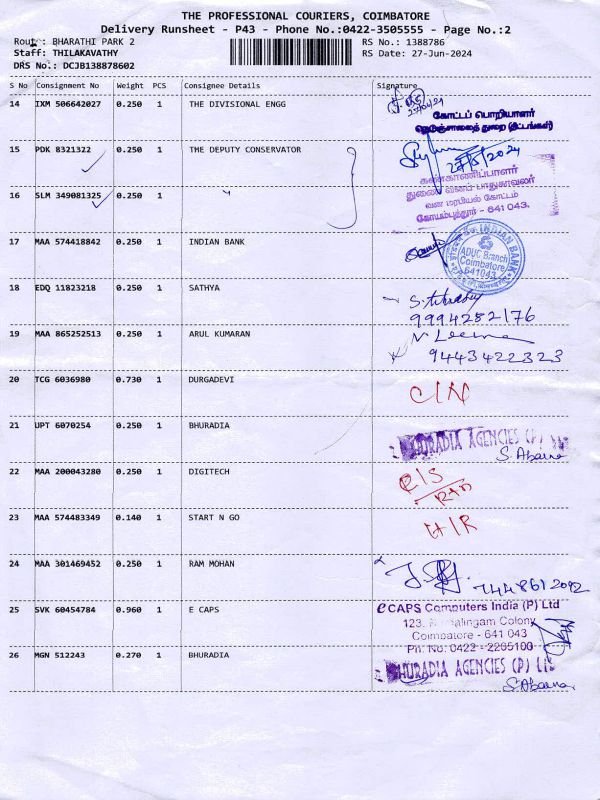 THE PROFESSIONAL COURIERS, COIMBATORE
Delivery Runsheet - P43 - Phone No.:0422-3505555 - Page No.:2
Rout : BHARATHI PARK 2 RS No.: 1388786
Staff: THILAKAVATHY RS Date: 27-Jun-2024
DRS No.: DCJB138878602
S No Consignment No Weight PCS Consignee Details Signature
14 IXM 506642027 0.250 1 THE DIVISIONAL ENGG
கோட்டப் பொறியாளர்
நெடுஞ்சாலைத் துறை (திட்டங்கள்)
15 PDK 8321322 0.250 1 THE DEPUTY CONSERVATOR
கண்காணிப்பாளர்
துணை வனப் பாதுகாவலர்
16 SLM 349081325 0.250 1 "
வன மரபியல் கோட்டம்
கோயம்புத்தூர் - 641 043.
17 MAA 574418842 0.250 1 INDIAN BANK
INDIAN BANK
ADUC Branch
Coimbatore
641043
18 EDQ 11823218 0.250 1 SATHYA
9994282176
19 MAA 865252513 0.250 1 ARUL KUMARAN
N Leema
9443422323
20 TCG 6036980 0.730 1 DURGADEVI
C/N
21 UPT 6070254 0.250 1 BHURADIA
BHURADIA AGENCIES (P)
S. Abarna
22 MAA 200043280 0.250 1 DIGITECH
R/S
23 MAA 574483349 0.140 1 START N GO
24 MAA 301469452 0.250 1 RAM MOHAN
7448612092
25 SVK 60454784 0.960 1 E CAPS
eCAPS Computers India (P) Ltd
Coimbatore - 641 043
Ph. No: 0422 - 2205100
26 MGN 512243 0.270 1 BHURADIA
BHURADIA AGENCIES (P)
S. Abarna